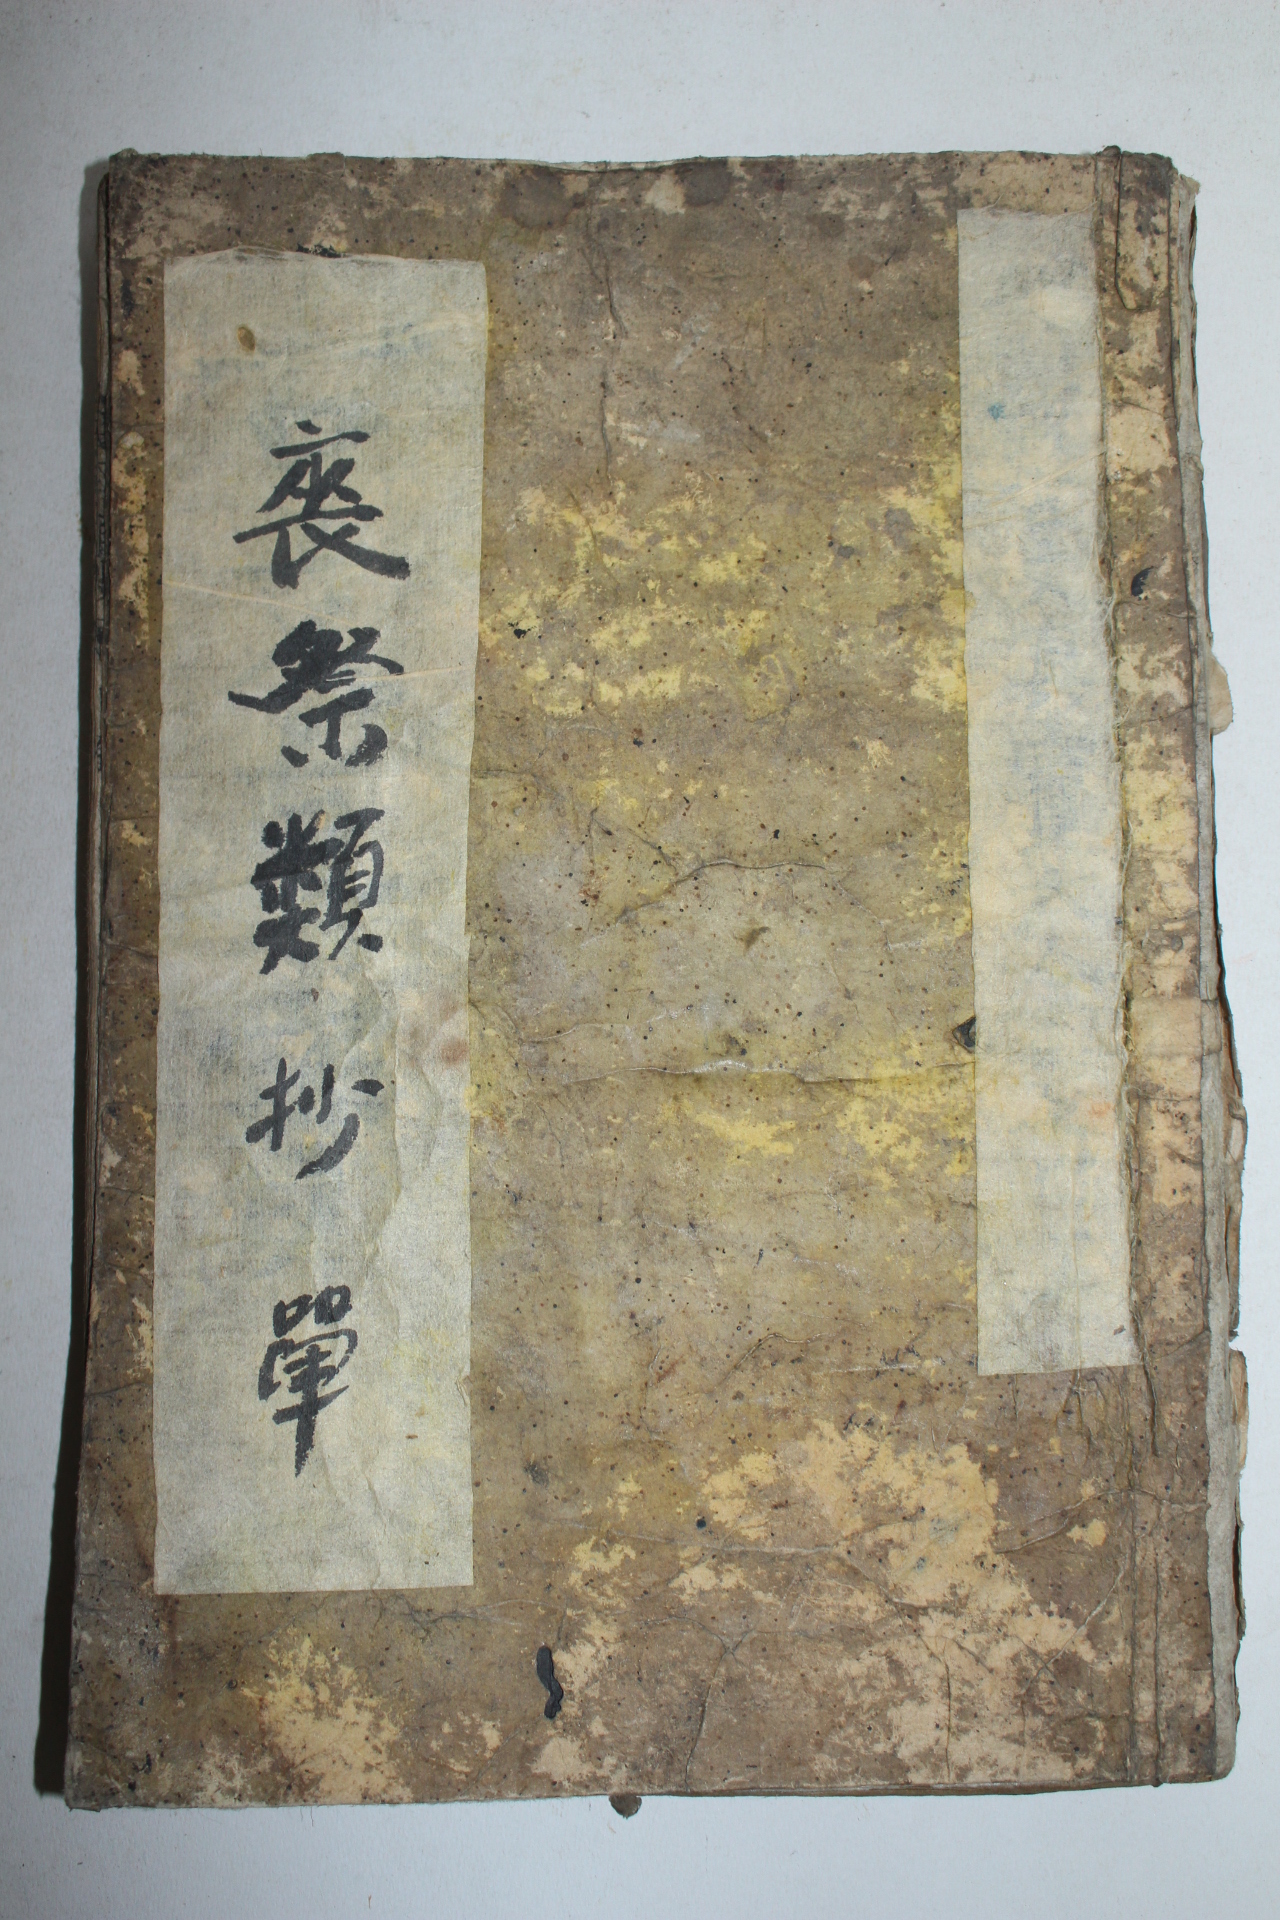 喪祭類抄 單